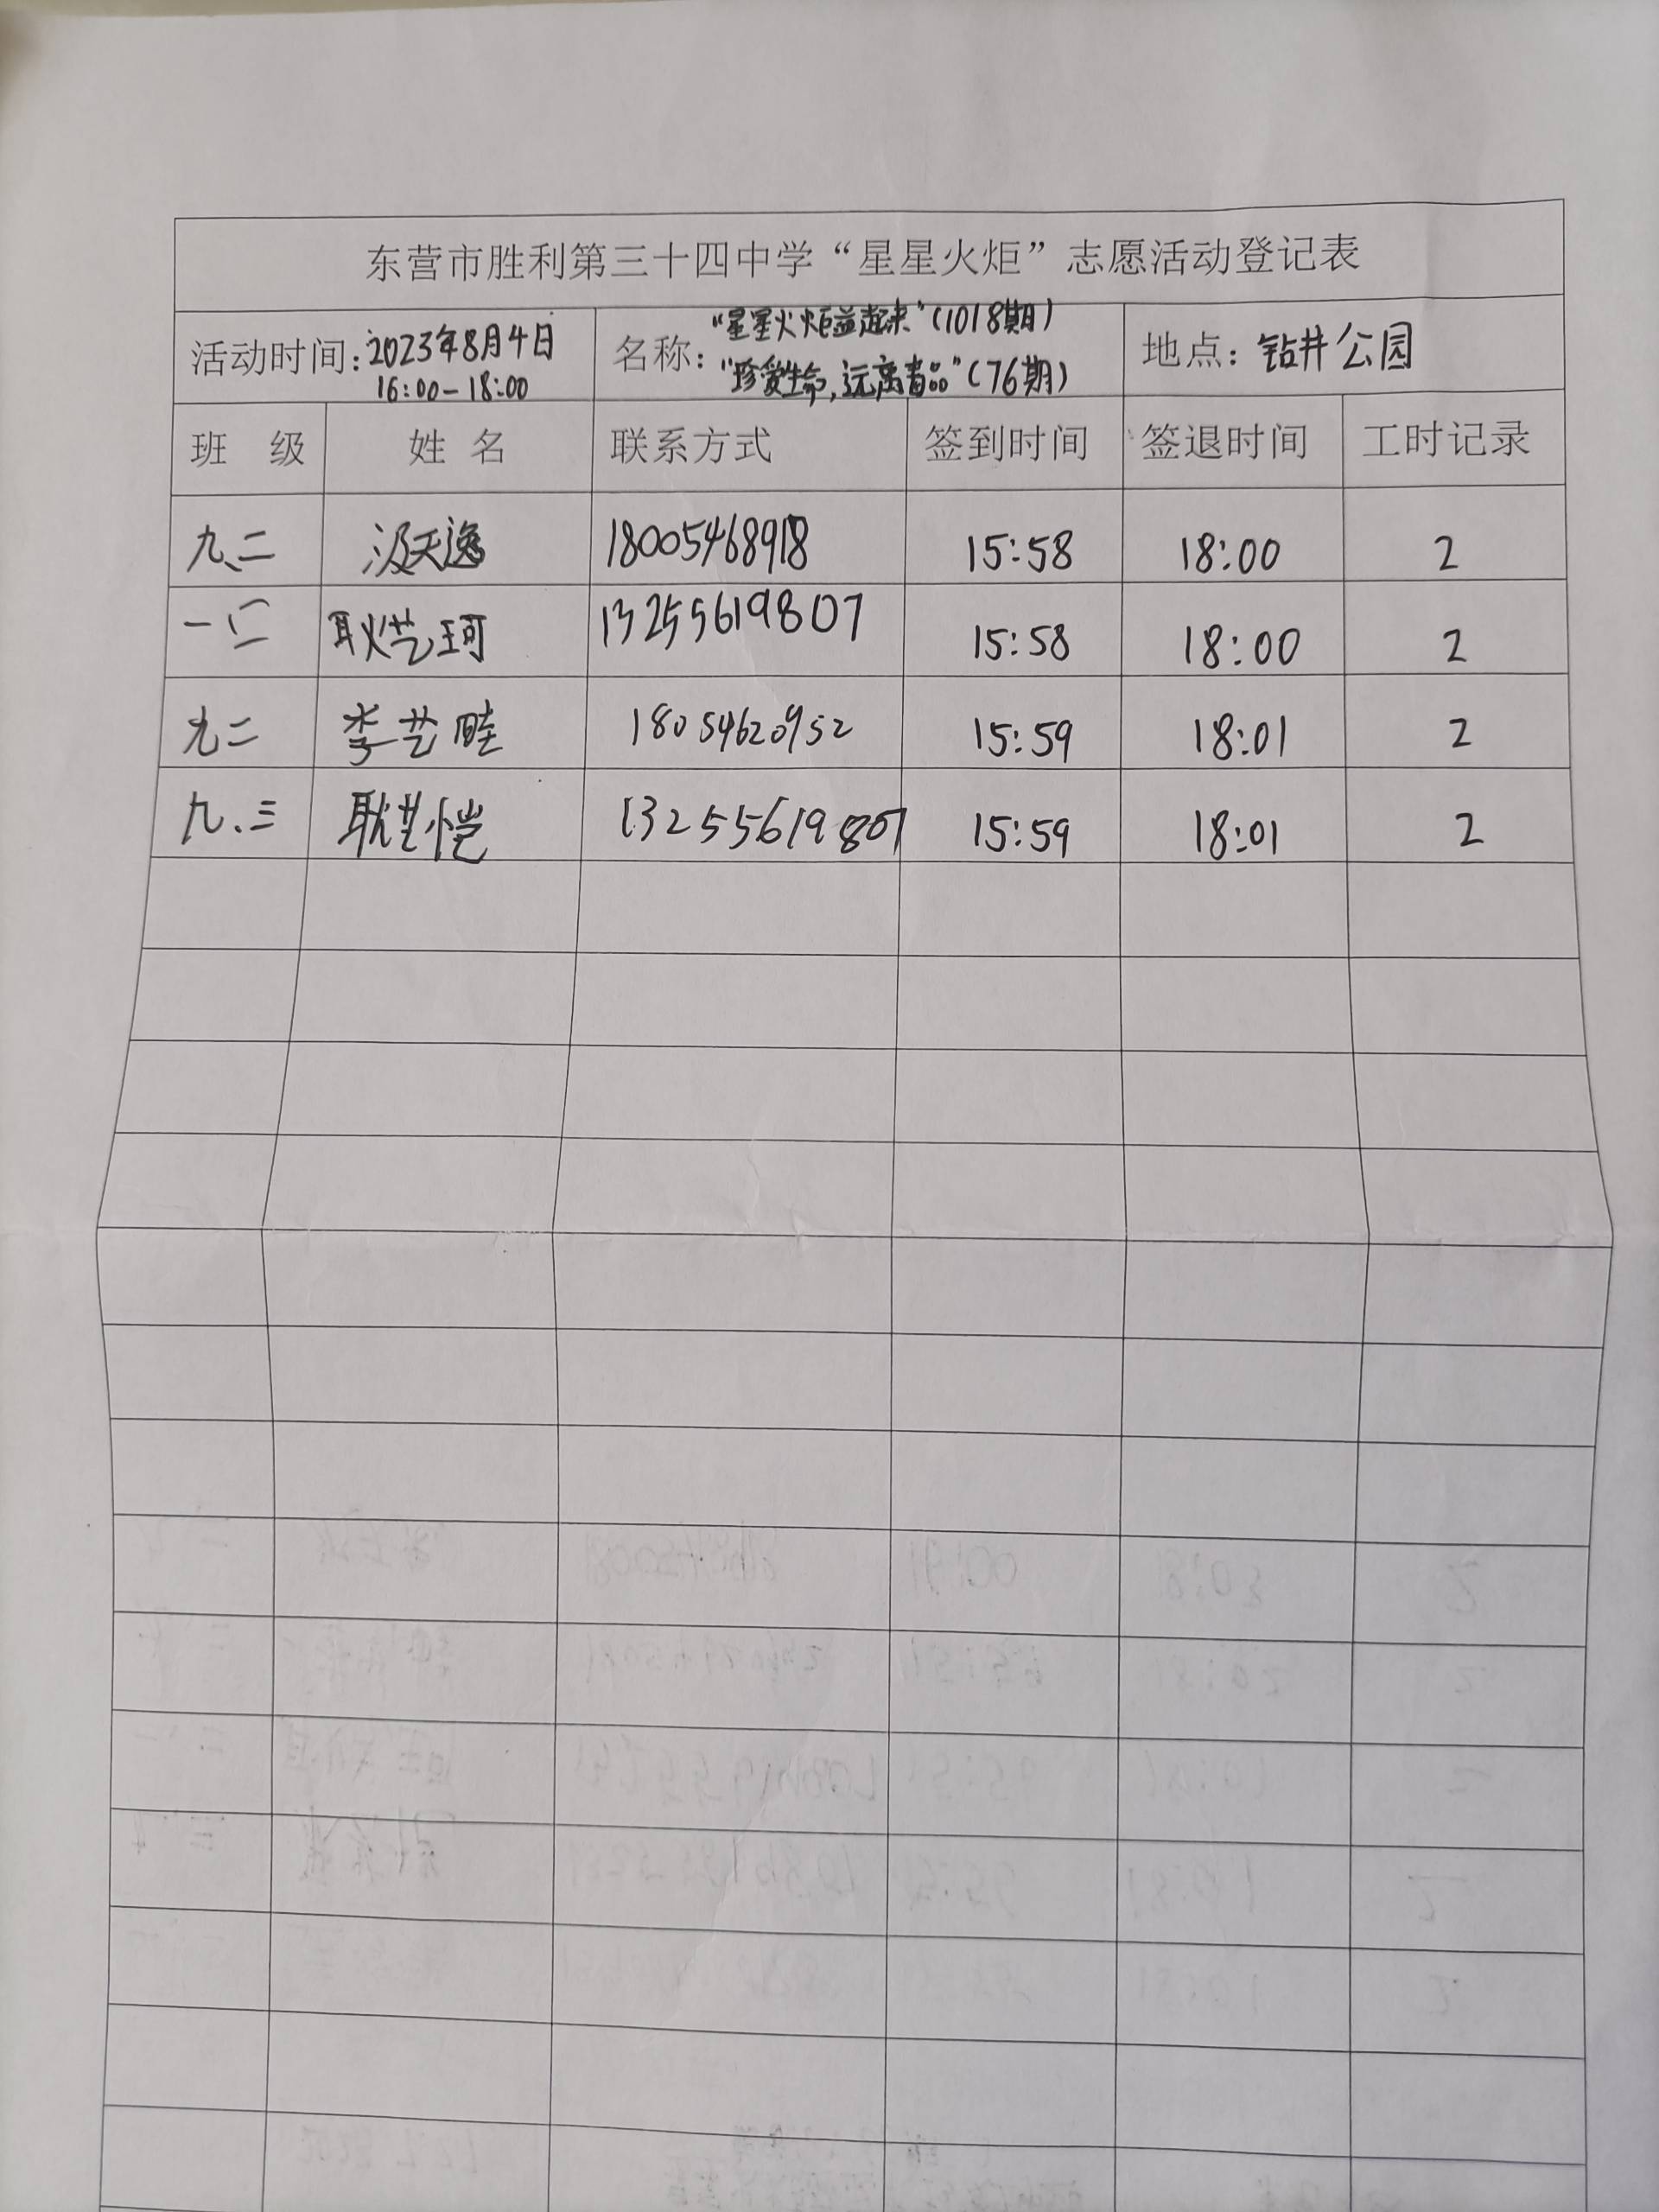 东营市胜利第三十四中学“星星火炬”志愿活动登记表
活动时间：2023年8月4日 16:00-18:00
名称：“星星火炬益起来”（1018期）
“珍爱生命，远离毒品”（76期）
地点：钻井公园
班 级 姓 名 联系方式 签到时间 签退时间 工时记录
九、二 汲天逸 18005468918 15:58 18:00 2
一、二 耿艺珂 13255619807 15:58 18:00 2
九二 李艺畦 18054620952 15:59 18:01 2
九、三 耿艺恺 13255619807 15:59 18:01 2